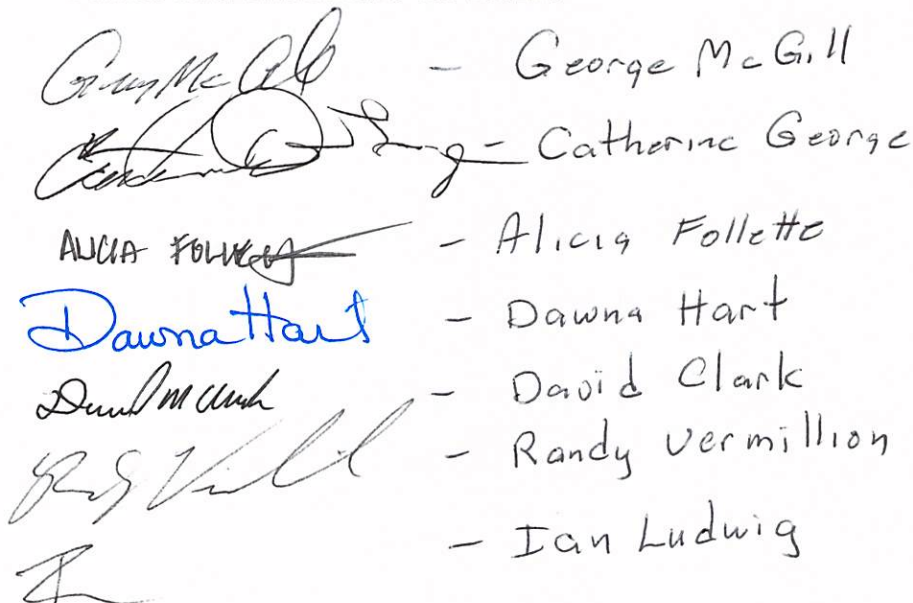 George McGill - George McGill
- Catherine George
ALICIA FOLLETTE - Alicia Follette
Dawna Hart - Dawna Hart
David M Clark - David Clark
- Randy Vermillion
- Ian Ludwig